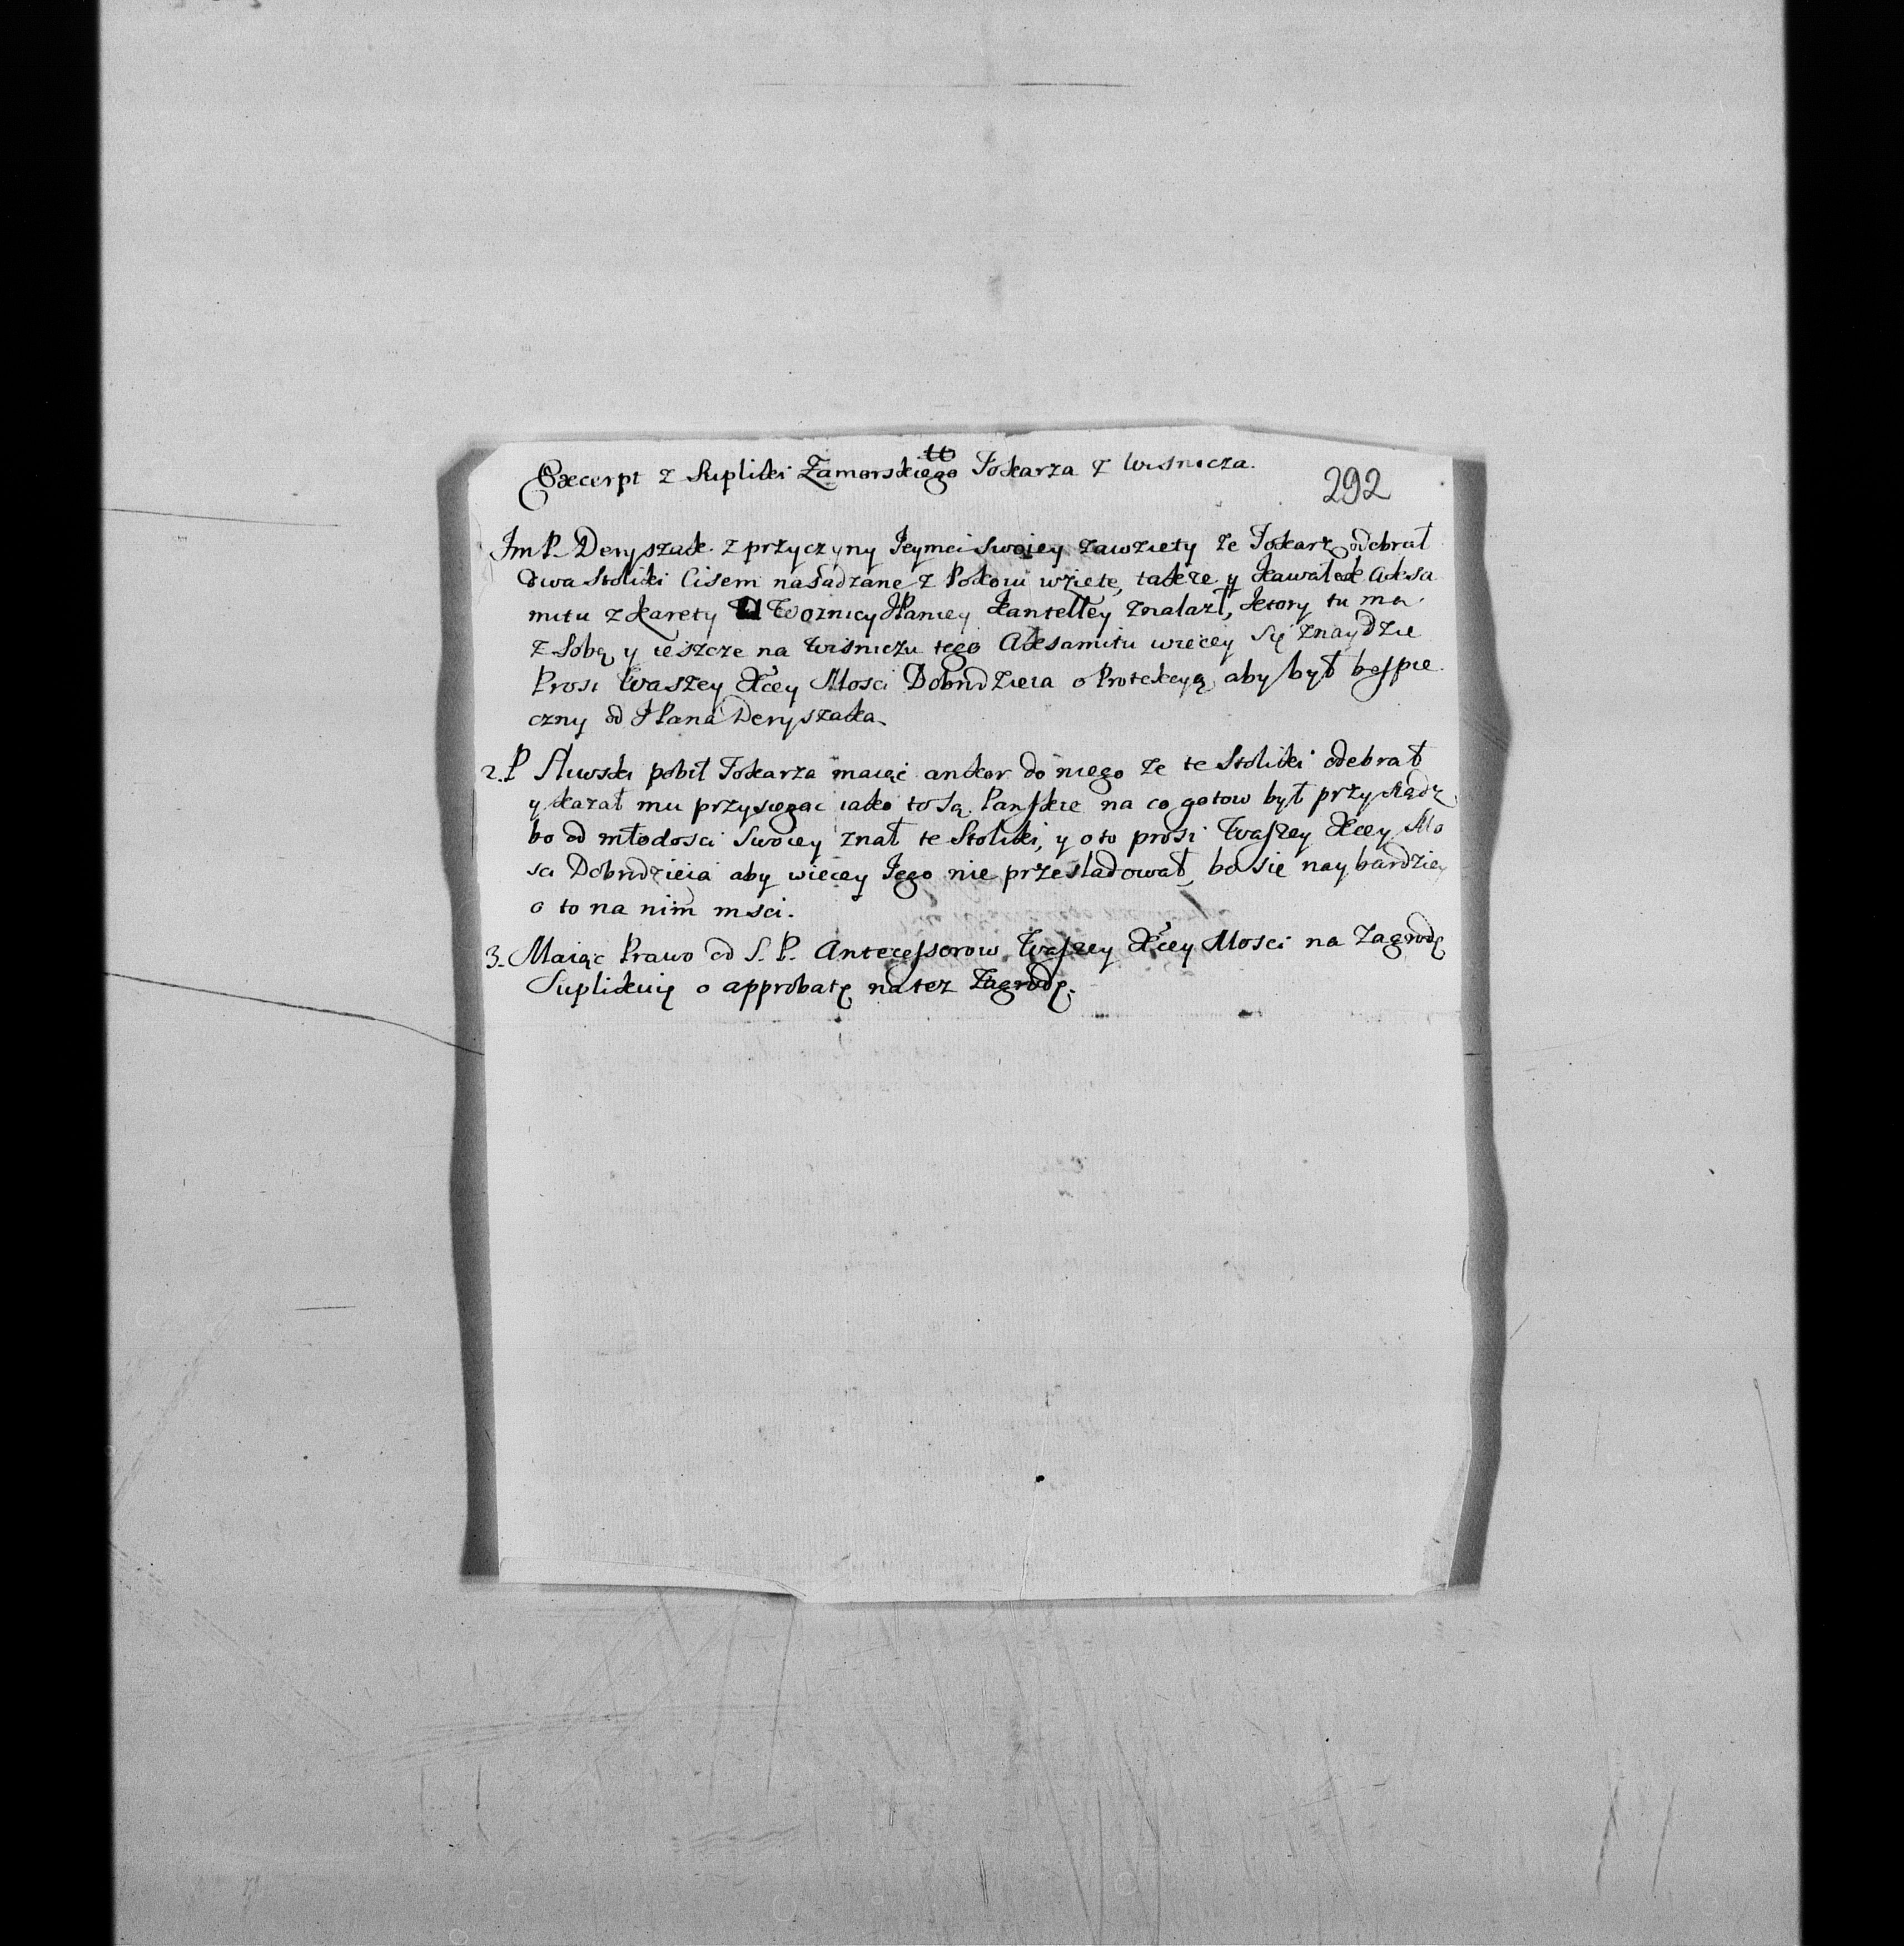 Excerpt z Supliki Zamorskiego Tokarza z Wisnicza.
292
Jm P. Deryszak z przyczyny Jeymci swoiey zawzięty ze Tokarz odebrał
dwa stoliki Cisem nasadzane z Pokoiu wzięte, także y kawałek Aksa
mitu z karety u Woznicy JPaniey Kantelley znalazł, ktory tu ma
z sobą y ieszcze na Wisniczu tego Aksamitu więcey się znaydzie
Prosi Waszey Xcey Mosci Dobrodzieia o Protekcyą aby był bespie
czny od JPana Deryszaka
2. P pobił Tokarza maiąc ankor do niego ze te Stoliki odebrał
y kazał mu przysięgac iako to są Panskie na co gotow był przysiądz
bo od młodosci swoiey znał te Stoliki, y oto prosi Waszey Xcey Mo
sci Dobrodzieia aby więcey Jego nie przesladował, bo się naybardziey
o to na nim msci.
3. Maiąc Prawo od S. P. Antecessorow Waszey Xcey Mosci na Zagrodę
Suplikuię o approbatę na tez Zagrodę.